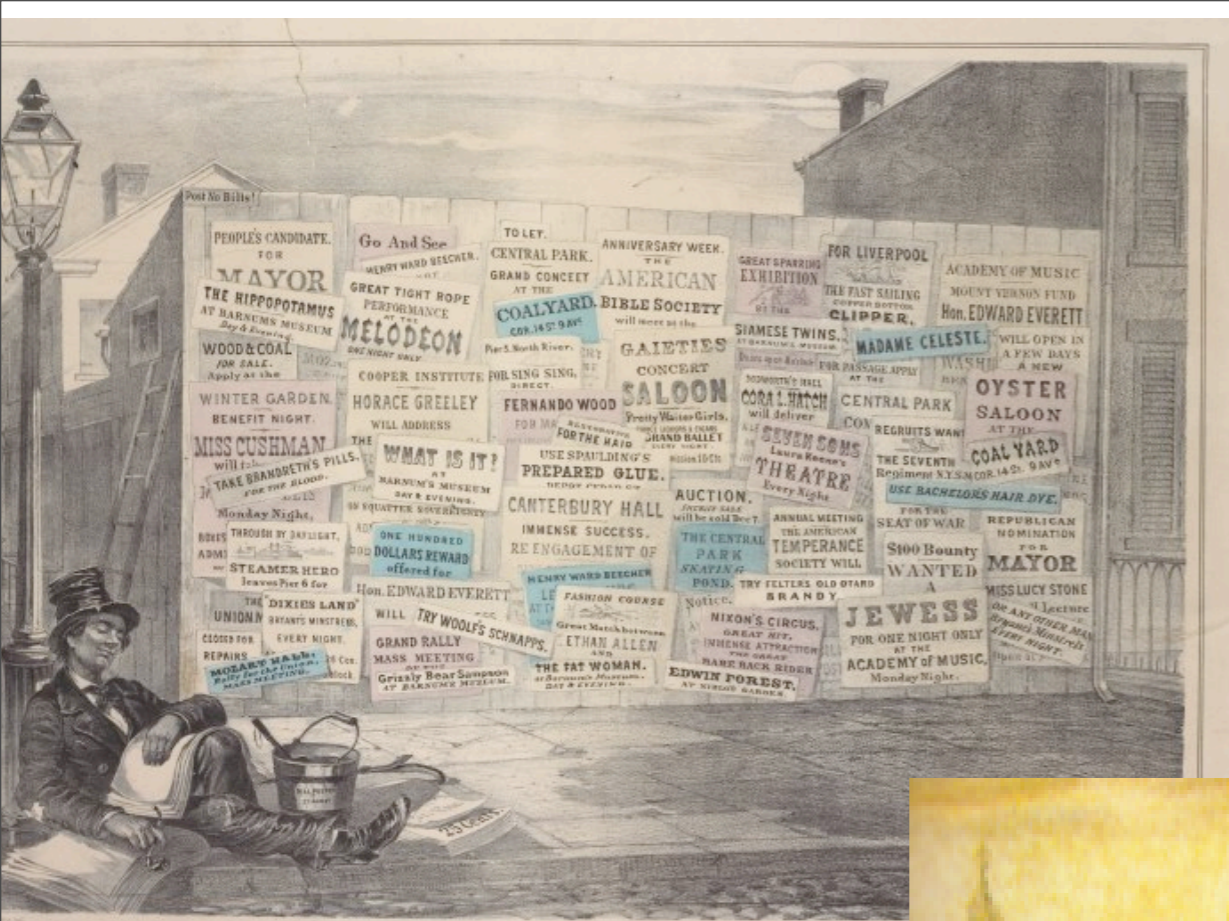 Post No Bills!
PEOPLE'S CANDIDATE.
FOR
MAYOR
THE HIPPOPOTAMUS
AT BARNUMS MUSEUM
Day & Evening.
WOOD & COAL
FOR SALE.
Apply at the
WINTER GARDEN.
BENEFIT NIGHT.
MISS CUSHMAN
will
TAKE BRANDRETH'S PILLS.
FOR THE BLOOD.
Monday Night,
THROUGH BY DAYLIGHT,
STEAMER HERO
leaves Pier 6 for
THE
UNION
"DIXIES LAND"
BRYANTS MINSTRELS,
EVERY NIGHT.
CLOSED FOR
REPAIRS
MOZART HALL.
Rally for the Union.
MASS MEETING.
Go And See
HENRY WARD BEECHER.
GREAT TIGHT ROPE
PERFORMANCE
AT THE
MELODEON
ONE NIGHT ONLY
COOPER INSTITUTE
HORACE GREELEY
WILL ADDRESS
THE
WHAT IS IT?
AT
BARNUM'S MUSEUM
DAY & EVENING.
ON SQUATTER SOVEREIGNTY
ONE HUNDRED
DOLLARS REWARD
offered for
Hon. EDWARD EVERETT
WILL
TRY WOOLF'S SCHNAPPS.
GRAND RALLY
MASS MEETING
Grizzly Bear Sampson
AT BARNUMS MUSEUM.
TO LET.
CENTRAL PARK.
GRAND CONCERT
AT THE
COALYARD.
COR. 14 St. 9 Av.
Pier 5. North River.
FOR SING SING,
DIRECT.
FERNANDO WOOD
FOR MA
RESTORATIVE
FOR THE HAIR
USE SPAULDING'S
PREPARED GLUE.
CANTERBURY HALL
IMMENSE SUCCESS.
RE ENGAGEMENT OF
HENRY WARD BEECHER
FASHION COURSE
Great Match between
ETHAN ALLEN
AND
THE FAT WOMAN.
at Barnum's Museum.
DAY & EVENING.
ANNIVERSARY WEEK.
THE
AMERICAN
BIBLE SOCIETY
will meet at the
GAIETIES
CONCERT
SALOON
Pretty Waiter Girls.
GRAND BALLET
EVERY NIGHT
AUCTION.
will be sold Dec 7.
THE CENTRAL
PARK
SKATING
POND.
Notice.
TRY FELTERS OLD OTARD
BRANDY.
NIXON'S CIRCUS.
GREAT HIT,
IMMENSE ATTRACTION
THE GREAT
BARE BACK RIDER
EDWIN FOREST.
AT NIBLOS GARDEN.
GREAT SPARRING
EXHIBITION
SIAMESE TWINS.
AT BARNUM'S MUSEUM.
DODWORTH'S HALL
CORA L. HATCH
will deliver
SEVEN SONS
Laura Keene's
THEATRE
Every Night
ANNUAL MEETING
THE AMERICAN
TEMPERANCE
SOCIETY WILL
FOR LIVERPOOL
THE FAST SAILING
COPPER BOTTOM
CLIPPER.
MADAME CELESTE.
FOR PASSAGE APPLY
AT THE
CENTRAL PARK
CON
RECRUITS WANT
THE SEVENTH
Regiment N.Y.S.M.
USE BACHELORS HAIR DYE.
FOR THE
SEAT OF WAR
$100 Bounty
WANTED
A
JEWESS
FOR ONE NIGHT ONLY
AT THE
ACADEMY of MUSIC,
Monday Night.
ACADEMY OF MUSIC
MOUNT VERNON FUND
Hon. EDWARD EVERETT
WILL OPEN IN
A FEW DAYS
A NEW
OYSTER
SALOON
AT THE
COAL YARD
COR. 14 St. 9 Av.
REPUBLICAN
NOMINATION
FOR
MAYOR
MISS LUCY STONE
Lecture
OR ANY OTHER MAN
Bryant's Minstrels
EVERY NIGHT.
BILL POSTER
25 Cents